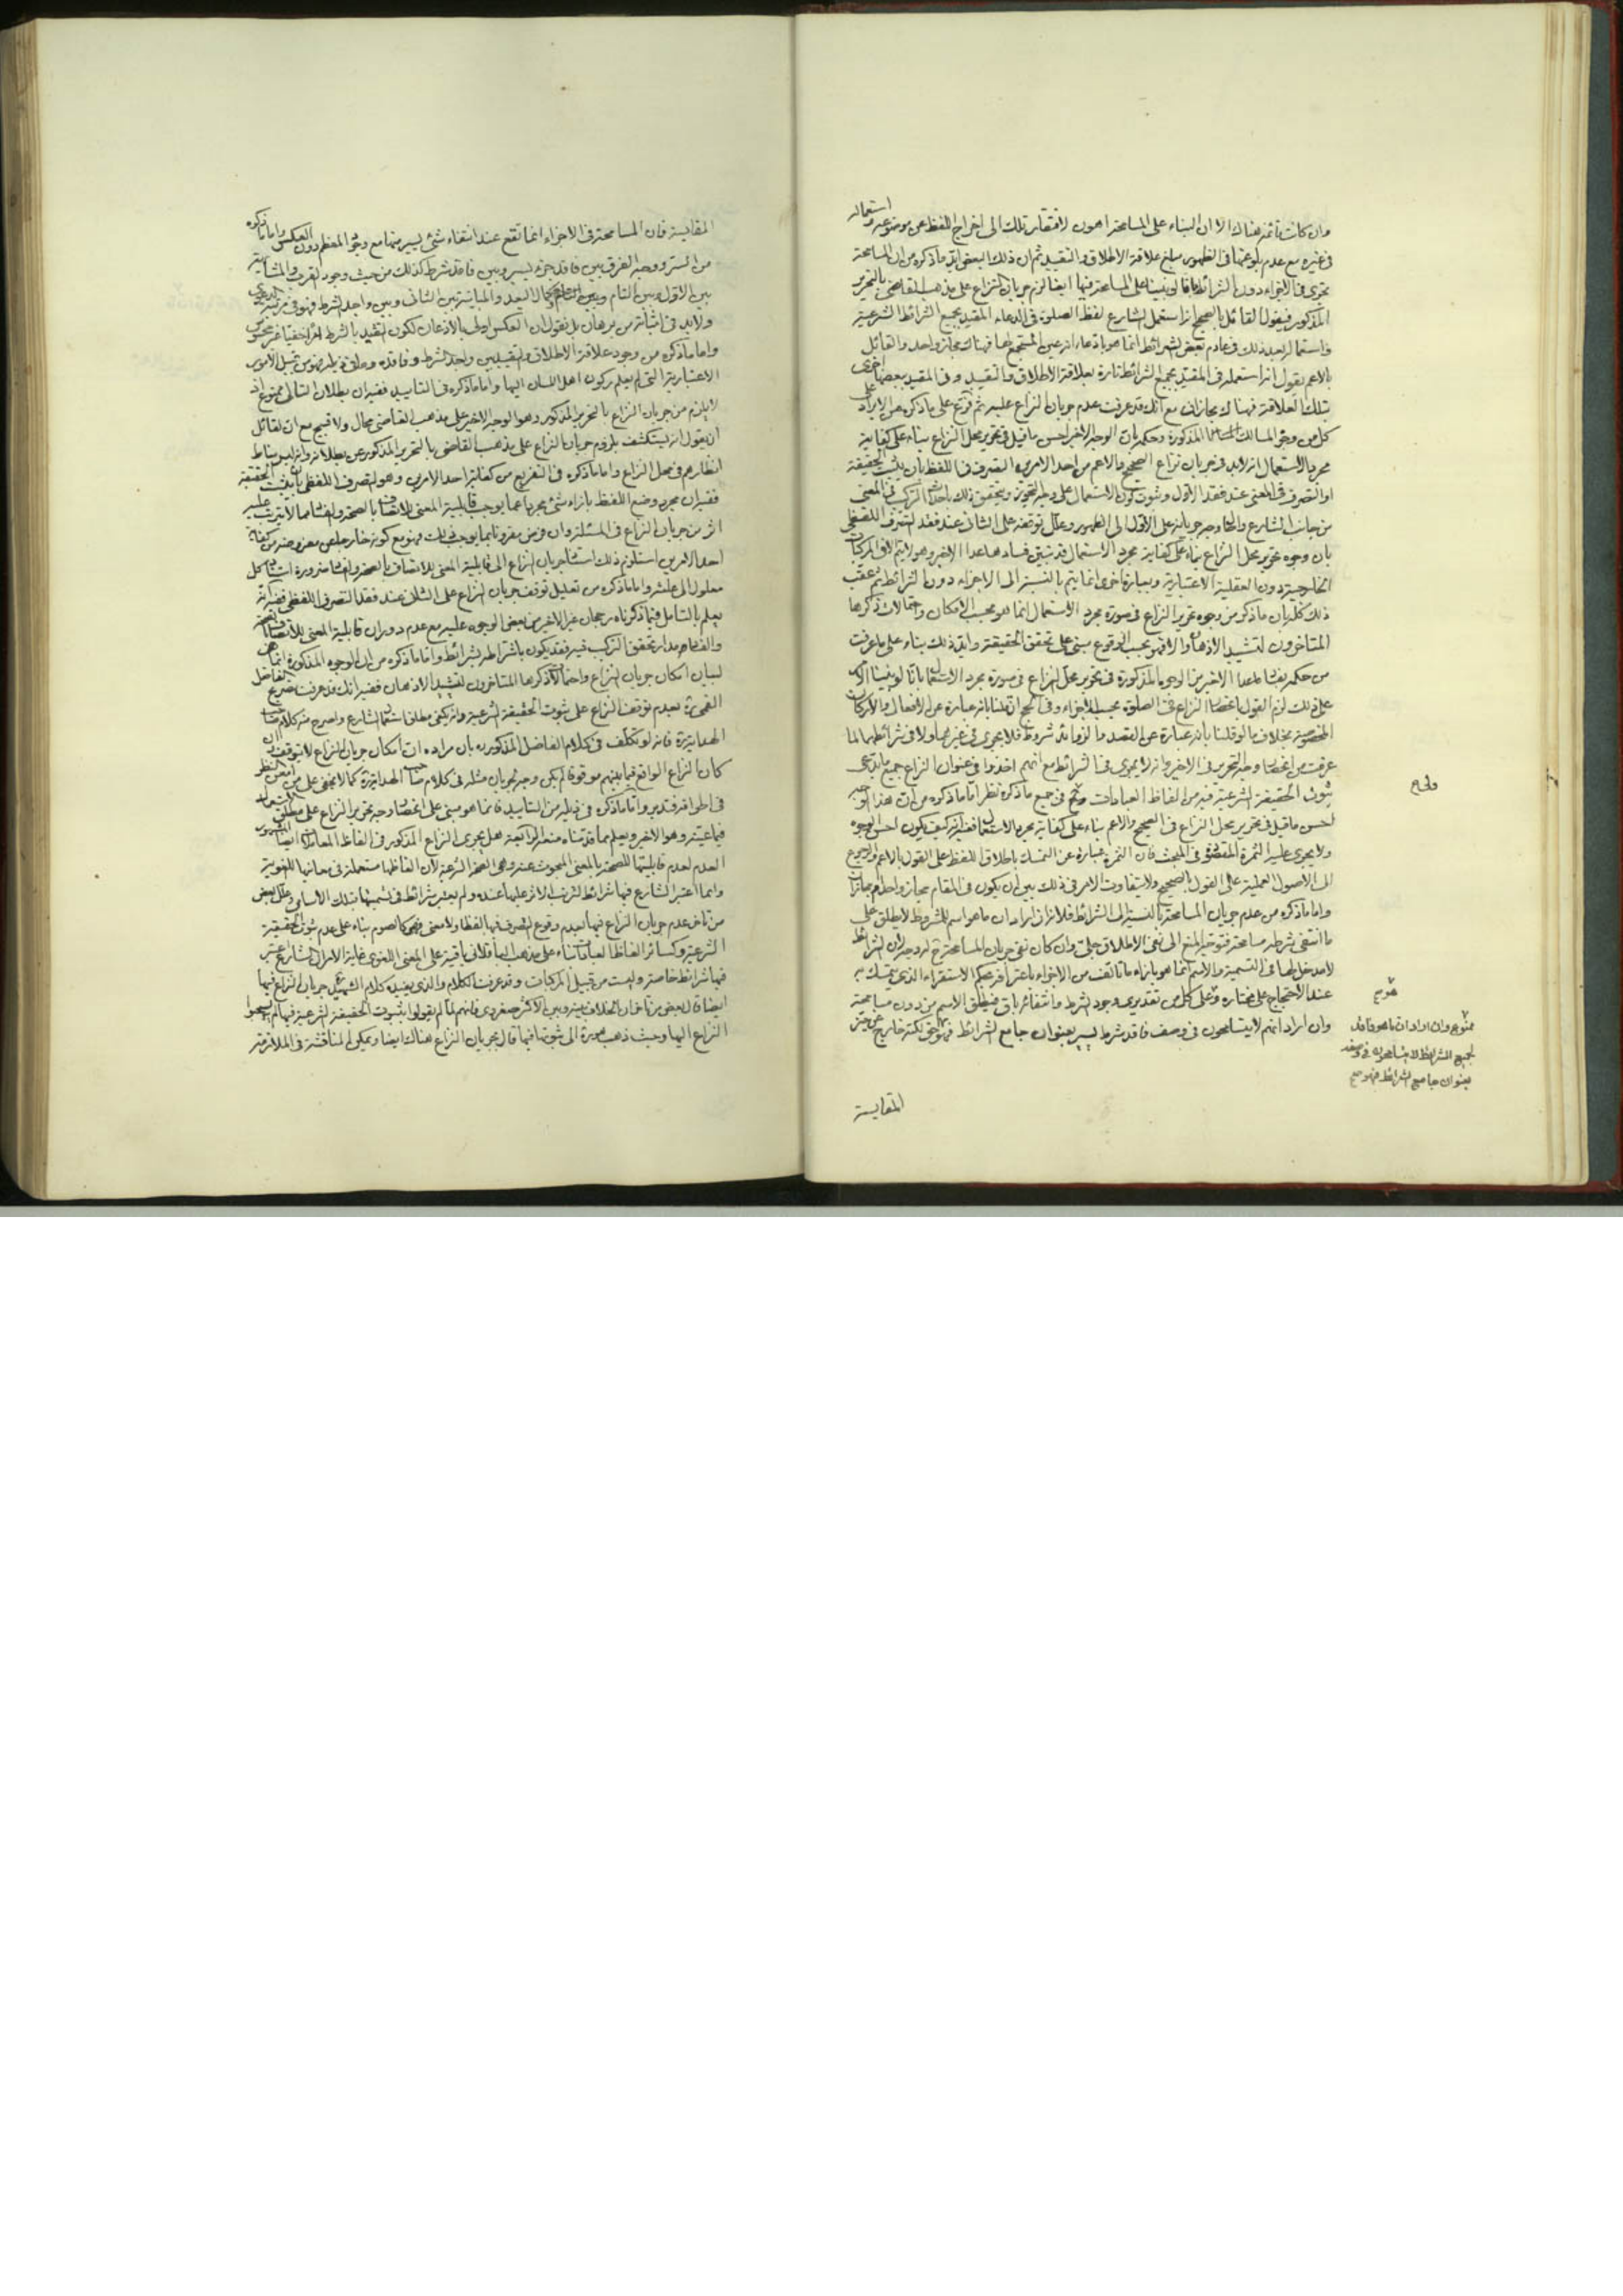 وان كانت ثابتة هناك الا ان البناء على المسامحة اهون لافتقار تلك الى اخراج اللفظ عن موضوعه واستعماله
في غيره مع عدم بلوغها في الظهور مبلغ علاقة الاطلاق والتقييد ثم ان ذلك البعض ما ذكره من ان المسامحة
تجري في الاجزاء دون الشرائط لو بنينا على المسامحة فيها ايضا لزم جريان النزاع على مذهب القاضي بالتحرير
المذكور فيقول القائل بالصحيح انه استعمل الشارع لفظ الصلوة في الدعاء المقيد بجميع الشرائط الشرعية
واستعماله بعد ذلك في فاقد بعض الشرائط انما هو بادعاء انه عين المستجمع لها فهناك مجاز واحد والقائل
بالاعم يقول انه استعمله في المقيد بجميع الشرائط تارة بعلاقة الاطلاق والتقييد وفي المقيد ببعضها اخرى
بتلك العلاقة فهناك مجازان مع انك قد عرفت عدم جريان النزاع عليه ثم فرّع على ما ذكره من الايراد على
كل من وجوه المسالك المذكورة وحكمه بان الوجه الاخير احسن ما قيل في تحرير محل النزاع بناء على كفاية
مجرد الاستعمال انه لابد في جريان نزاع الصحيح والاعم من احد الامرين التصرف في اللفظ بان يثبت الحقيقة
او التصرف في المعنى عند فقد الاول وثبوت كون الاستعمال على وجه التجوز ويتحقق ذلك باحداث التركيب في المعنى
من جانب الشارع واحال وجه جريانه على الاول الى الظهور وعلل توقفه على الثاني عند فقد التصرف اللفظي
بان وجوه تحرير محل النزاع بناء على كفاية مجرد الاستعمال قد تبين فساد ما عدا الاخير وهو لا يتم الا في المركبات
الخارجية دون العقلية الاعتبارية وبعبارة اخرى انما يتم بالنسبة الى الاجزاء دون الشرائط ثم عقب
ذلك كله بان ما ذكر من وجوه تحرير النزاع في صورة مجرد الاستعمال انما هو بحسب الامكان واحتمالات ذكرها
المتاخرون لتشييد الاذهان والا فهو بحسب الوقوع مبني على تحقق الحقيقة وايد ذلك بناء على ما عرفت
من حكمه بفساد ما عدا الاخير من الوجوه المذكورة في تحرير محل النزاع في صورة مجرد الاستعمال بانا لو بنينا الامر
على ذلك لزم القول باختصاص النزاع في الصلوة بحسب الاجزاء وفي الحج ان قلنا بانه عبارة عن الافعال والاركان
المخصوصة بخلاف ما لو قلنا بانه عبارة عن القصد وما لزومائه شروط فلا يجري في غيرهما ولا في شرائطهما لما
عرفت من اختصاص وجه التحرير في الاخير وانه لا يجري في الشرائط مع انهم اخذوا في عنوان النزاع جميع ما يدعى
ثبوت الحقيقة الشرعية فيه من الفاظ العبادات وفي جميع ما ذكره نظر اما ما ذكره من ان هذا الوجه
احسن ما قيل في تحرير محل النزاع في الصحيح والاعم بناء على كفاية مجرد الاستعمال ففيه انه كيف يكون احسن الوجوه
ولا يجري عليه الثمرة المقصودة في المبحث فان الثمرة عبارة عن التمسك باطلاق اللفظ على القول بالاعم والرجوع
الى الاصول العملية على القول بالصحيح ولا يتفاوت الامر في ذلك بين ان يكون في المقام مجاز واحد ام مجازات
واما ما ذكره من عدم جريان المسامحة بالنسبة الى الشرائط فلانه ان اراد ان ما هو اسم للمشروط لا يطلق على
ما انتفى شرطه مسامحة فتوجه المنع الى نفي الاطلاق جلي وان كان نفي جريان المسامحة له وجه لان الشرائط
لا مدخل لها في التسمية والاسم انما هو بازاء ما تالف من الاجزاء باعترافه بحكم الاستقراء الذي يتمسك به
عند الاحتجاج على مختاره وعلى كل من تقديري وجود الشرط وانتفائه باق فيطلق الاسم من دون مسامحة
وان اراد انهم لا يتسامحون في وصف فاقد شرط يسير بعنوان جامع الشرائط فهو حق لكنه خارج عن حيز
ولح
ممنوع وان اراد ان ما هو فاقد
لجميع الشرائط لا يتسامحون في وصفه
بعنوان جامع الشرائط فهو مع
المقايسة
المقايسة فان المسامحة في الاجزاء انما تقع عند انتفاء شيء يسير منها مع وجود المعظم دون العكس واما ما ذكره
من السر ووجه الفرق بين فاقد جزء يسير وبين فاقد شرط كذلك من حيث وجود القرب والمشابهة
بين الاول وبين التام وبين كمال البعد والمباينة بين الثاني وبين واجد الشرط فهو في مرتبة الدعوى
ولابد في اثباته من برهان بل نقول ان العكس اولى بالاذعان لكون التقييد بالشرط امرا خفيا غير محسوس
واما ما ذكره من وجود علاقة الاطلاق والتقييد بين واجد الشرط وفاقده وما في نظره فهو من قبيل الامور
الاعتبارية التي لم يعلم ركون اهل اللسان اليها واما ما ذكره في التاييد ففيه ان بطلان التالي ممنوع اذ
لا يلزم من جريان النزاع بالتحرير المذكور وهو الوجه الاخير على مذهب القاضي محال ولا قبيح مع ان لقائل
ان يقول انه يستكشف بلزوم جريان النزاع على مذهب القاضي بالتحرير المذكور عن بطلانه وانه ليس مناط
انظارهم في محل النزاع واما ما ذكره في التفريع من كفاية احد الامرين وهو التصرف اللفظي بان يثبت الحقيقة
ففيه ان مجرد وضع اللفظ بازاء شيء مجردا عما يوجب قابلية المعنى للاتصاف بالصحة والفساد مما لا يترتب عليه
اثر من جريان النزاع في المسئلة وان فرض مقرونا بما يوجب ذلك فهو مع كونه خارجا عن مفروضه من كفاية
احد الامرين استلزم ذلك استناد جريان النزاع الى قابلية المعنى للاتصاف بالصحة والفساد ضرورة استناد كل
معلول الى علته واما ما ذكره من تعليل توقف جريان النزاع على الثاني عند فقد التصرف اللفظي ففيه انه
يعلم بالتامل فيما ذكرناه رجحان غير الاخير من بعض الوجوه عليه مع عدم دوران قابلية المعنى للاتصاف بالصحة
والفساد مدار تحقق التركيب فيه فقد يكون باشتراطه بشرائط واما ما ذكره من ان الوجوه المذكورة انما هي
لبيان امكان جريان النزاع واحتمالات ذكرها المتاخرون لتشييد الاذهان ففيه انك قد عرفت تصريح الفاضل
القمي ره بعدم توقف النزاع على ثبوت الحقيقة الشرعية وانه يكفي مطلق استعمال الشارع واصرح منه كلام صاحب
الهداية ره فانه لو تكلف في كلام الفاضل المذكور ره بان مراده ان امكان جريان النزاع لا يتوقف وان
كان النزاع الواقع فيما بينهم موقوفا لم يكن وجه لجريان مثله في كلام صاحب الهداية ره كما لا يخفى على من امعن النظر
في اطرافه فتدبر واما ما ذكره في ذيله من التاييد فانما هو مبني على اختصاص وجه تحرير النزاع على مطلق الاستعمال
فيما عينه وهو الاخير ويعلم مما قدمناه منعه الرابعة هل يجري النزاع المذكور في الفاظ المعاملات ايضا المشهور
العدم لعدم قابليتها للصحة بالمعنى المبحوث عنه وهي الصحة الشرعية لان الفاظها مستعملة في معانيها اللغوية
وانما اعتبر الشارع فيها شرائط لترتب الاثر عليها عنده ولم يعتبر شرائط في تسميتها بتلك الاسامي وعلل بعض
من تاخر عدم جريان النزاع فيها بعدم وقوع التصرف فيها لفظا ولا معنى فهي كالصوم بناء على عدم ثبوت الحقيقة
الشرعية وكسائر الفاظ العبادات بناء على مذهب الباقلاني باقية على المعنى اللغوي غاية الامر ان الشارع اعتبر
فيها شرائط خاصة وليست من قبيل المركبات وقد عرفت الكلام والذي يفيده كلام الشهيد جريان النزاع فيها
ايضا قال بعض من تاخر ان الخلاف بينه وبين الاكثر صغروي فانهم لما لم يقولوا بثبوت الحقيقة الشرعية فيها لم يسحبوا
النزاع اليها وحيث ذهب هو ره الى ثبوتها فيها قال بجريان النزاع هناك ايضا ويمكن له مناقشة في الملازمة